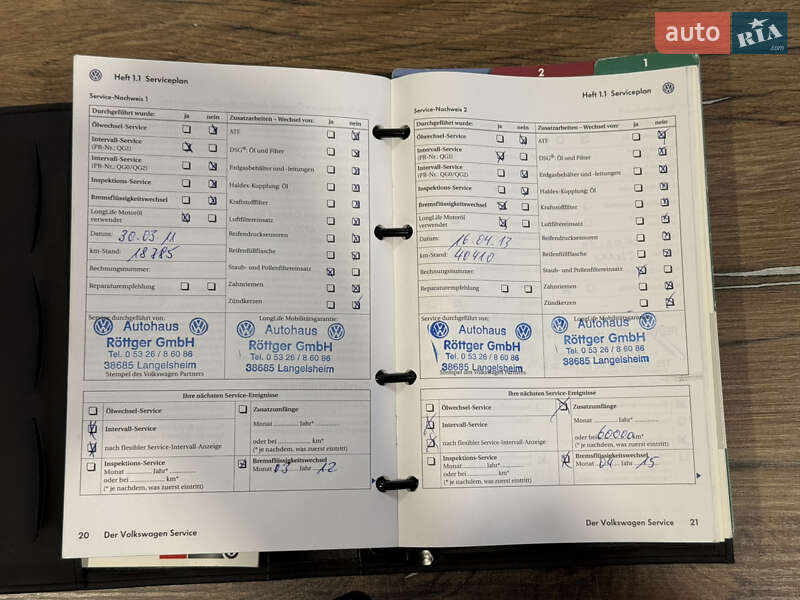 auto RIA .com
2
1
Heft 1.1 Serviceplan
Service-Nachweis 1
Durchgeführt wurde: ja nein Zusatzarbeiten – Wechsel von: ja nein
Ölwechsel-Service
ATF
Intervall-Service
(PR-Nr.: QG1)
DSG®: Öl und Filter
Intervall-Service
(PR-Nr.: QG0/QG2)
Erdgasbehälter und -leitungen
Inspektions-Service
Haldex-Kupplung: Öl
Bremsflüssigkeitswechsel
Kraftstofffilter
LongLife Motoröl
verwendet
Luftfiltereinsatz
Datum: 30.03.11
Reifendrucksensoren
km-Stand: 18785
Reifenfüllflasche
Rechnungsnummer:
Staub- und Pollenfiltereinsatz
Reparaturempfehlung
Zahnriemen
Zündkerzen
Service durchgeführt von:
LongLife Mobilitätsgarantie:
Autohaus
Röttger GmbH
Tel. 0 53 26 / 8 60 86
38685 Langelsheim
Stempel des Volkswagen Partners
Autohaus
Röttger GmbH
Tel. 0 53 26 / 8 60 86
38685 Langelsheim
Ihre nächsten Service-Ereignisse
Ölwechsel-Service
Zusatzumfänge
Intervall-Service
Monat Jahr*
nach flexibler Service-Intervall-Anzeige
oder bei km*
(* je nachdem, was zuerst eintritt)
Inspektions-Service
Monat Jahr*
oder bei km*
(* je nachdem, was zuerst eintritt)
Bremsflüssigkeitswechsel
Monat 03 Jahr 12
20 Der Volkswagen Service
Heft 1.1 Serviceplan
Service-Nachweis 2
Durchgeführt wurde: ja nein Zusatzarbeiten – Wechsel von: ja nein
Ölwechsel-Service
ATF
Intervall-Service
(PR-Nr.: QG1)
DSG®: Öl und Filter
Intervall-Service
(PR-Nr.: QG0/QG2)
Erdgasbehälter und -leitungen
Inspektions-Service
Haldex-Kupplung: Öl
Bremsflüssigkeitswechsel
Kraftstofffilter
LongLife Motoröl
verwendet
Luftfiltereinsatz
Datum: 16.04.13
Reifendrucksensoren
km-Stand: 40410
Reifenfüllflasche
Rechnungsnummer:
Staub- und Pollenfiltereinsatz
Reparaturempfehlung
Zahnriemen
Zündkerzen
Service durchgeführt von:
LongLife Mobilitätsgarantie:
Autohaus
Röttger GmbH
Tel. 0 53 26 / 8 60 86
38685 Langelsheim
Stempel des Volkswagen Partners
Autohaus
Röttger GmbH
Tel. 0 53 26 / 8 60 86
38685 Langelsheim
Ihre nächsten Service-Ereignisse
Ölwechsel-Service
Zusatzumfänge
Intervall-Service
Monat Jahr*
nach flexibler Service-Intervall-Anzeige
oder bei 60000 km*
(* je nachdem, was zuerst eintritt)
Inspektions-Service
Monat Jahr*
oder bei km*
(* je nachdem, was zuerst eintritt)
Bremsflüssigkeitswechsel
Monat 04 Jahr 15
Der Volkswagen Service 21